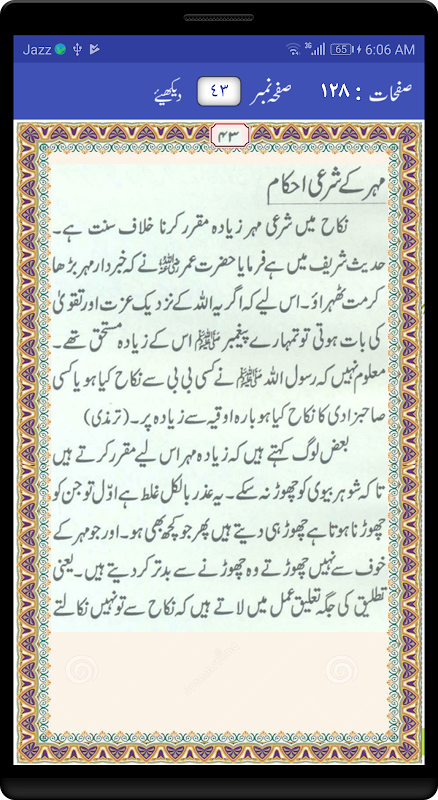 Jazz 3G 65 6:06 AM
صفحات : ۱۲۸ صفحہ نمبر ٤٣ دیکھیئے
۴۳
مہر کے شرعی احکام
نکاح میں شرعی مہر زیادہ مقرر کرنا خلاف سنت ہے۔
حدیث شریف میں ہے فرمایا حضرت عمر رضی اللہ عنہ نے کہ خبردار مہر بڑھا
کر مت ٹھہراؤ۔ اس لیے کہ اگر یہ اللہ کے نزدیک عزت اور تقویٰ
کی بات ہوتی تو تمہارے پیغمبر ﷺ اس کے زیادہ مستحق تھے۔
معلوم نہیں کہ رسول اللہ ﷺ نے کسی بی بی سے نکاح کیا ہو یا کسی
صاحبزادی کا نکاح کیا ہو بارہ اوقیہ سے زیادہ پر۔ (ترمذی)
بعض لوگ کہتے ہیں کہ زیادہ مہر اس لیے مقرر کرتے ہیں
تا کہ شوہر بیوی کو چھوڑ نہ سکے۔ یہ عذر بالکل غلط ہے اوّل تو جن کو
چھوڑنا ہوتا ہے چھوڑ ہی دیتے ہیں پھر جو کچھ بھی ہو۔ اور جو مہر کے
خوف سے نہیں چھوڑتے وہ چھوڑنے سے بدتر کر دیتے ہیں۔ یعنی
تطلیق کی جگہ تعلیق عمل میں لاتے ہیں کہ نکاح سے تو نہیں نکالتے